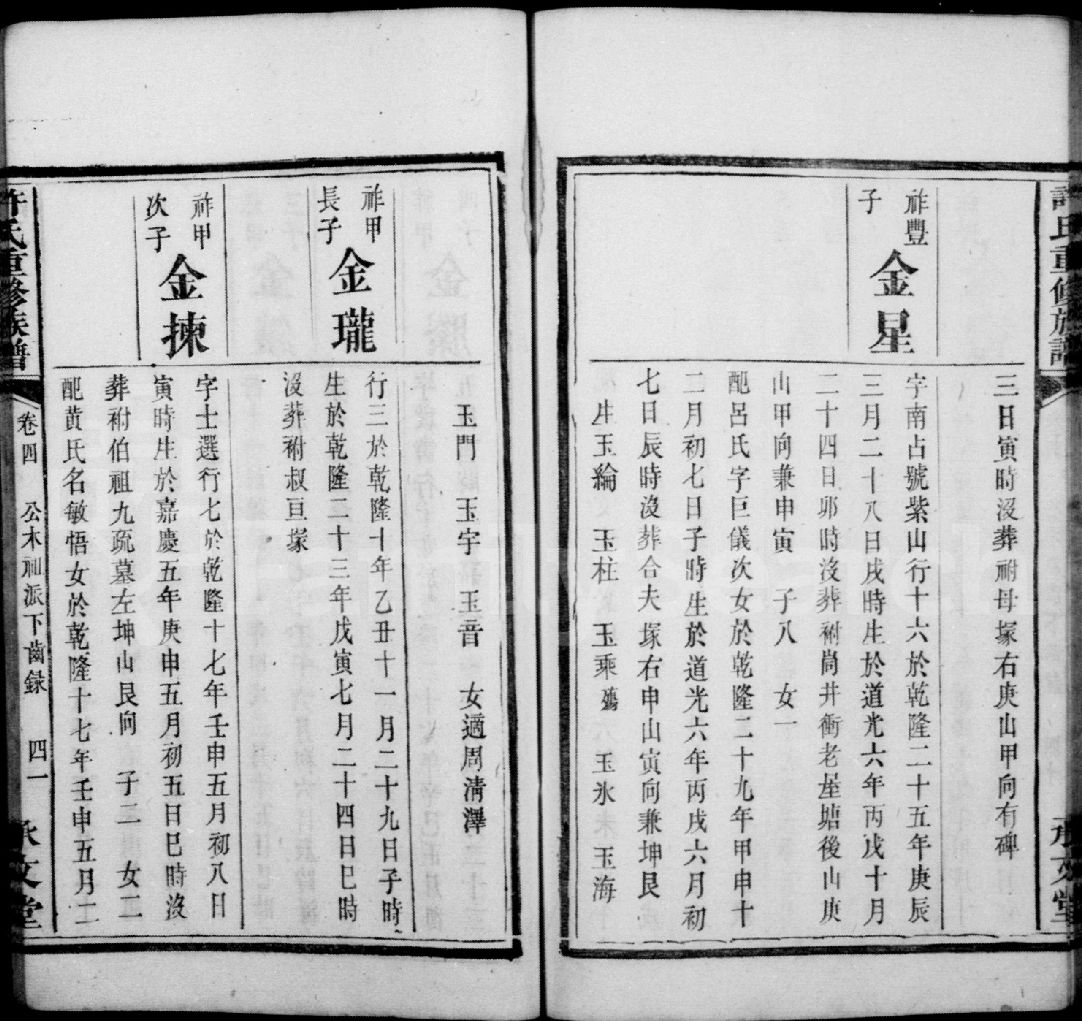 許氏重修族譜
承文堂
三日寅時沒葬祔母塚右庚山甲向有碑
祚豐
子
金星
字南占號紫山行十六於乾隆二十五年庚辰
三月二十八日戌時生於道光六年丙戌十月
二十四日卯時沒葬祔筒井衝老屋塘後山庚
山甲向兼申寅 子八 女一
配呂氏字巨儀次女於乾隆二十九年甲申十
二月初七日子時生於道光六年丙戌六月初
七日辰時沒葬合夫塚右申山寅向兼坤艮
生玉綸 玉柱 玉乘殤 玉氷未 玉海
玉門 玉宇 玉音 女適周清澤
祚甲
長子
金瓏
行三於乾隆十年乙丑十一月二十九日子時
生於乾隆二十三年戊寅七月二十四日巳時
沒葬祔叔亘塚
祚甲
次子
金揀
字士選行七於乾隆十七年壬申五月初八日
寅時生於嘉慶五年庚申五月初五日巳時沒
葬祔伯祖九疏墓左坤山艮向 子三 女二
配黄氏名敏悟女於乾隆十七年壬申五月二
許氏重修族譜
卷四 公木祕派下齒録 四一
承文堂